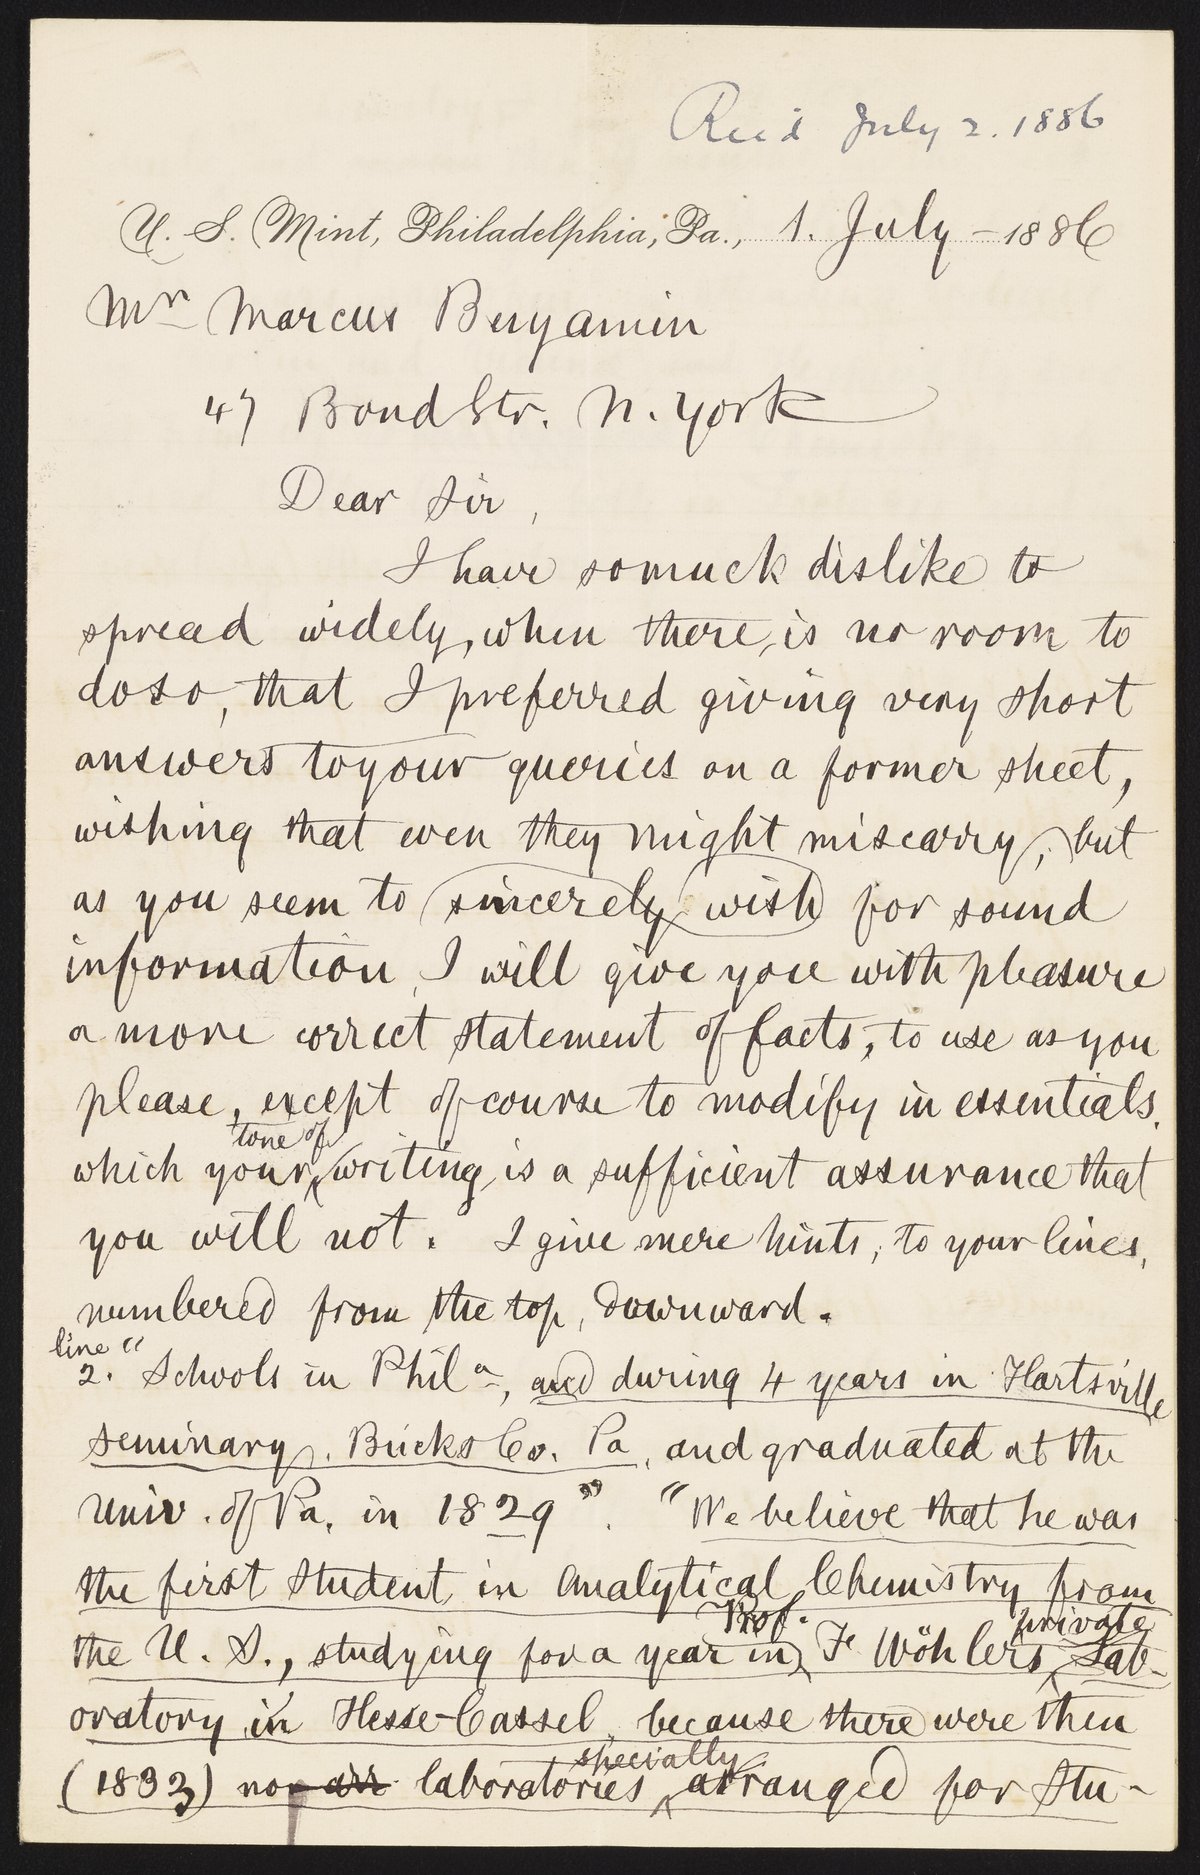 Rec'd July 2. 1886
U. S. Mint, Philadelphia, Pa., 1. July – 1886
Mr Marcus Benjamin
47 Bond Str. N. York
Dear Sir,
I have so much dislike to
spread widely, when there, is no room to
do so, that I preferred giving very short
answers to your queries on a former sheet,
wishing that even they might miscarry; but
as you seem to sincerely wish for sound
information, I will give you with pleasure
a more correct statement of facts, to use as you
please, except of course to modify in essentials,
tone of
which your writing, is a sufficient assurance that
you will not. I give mere hints, to your lines,
numbered from the top, downward.
line
2. "Schools in Phila, and during 4 years in Hartsville
seminary, Bucks Co. Pa, and graduated at the
Univ. of Pa. in 1829". "We believe that he was
the first student in Analytical Chemistry from
Prof. private
the U. S., studying for a year in F. Wöhlers Lab-
oratory in Hesse-Cassel, because there were then
specially
(1833) no laboratories arranged for Stu-